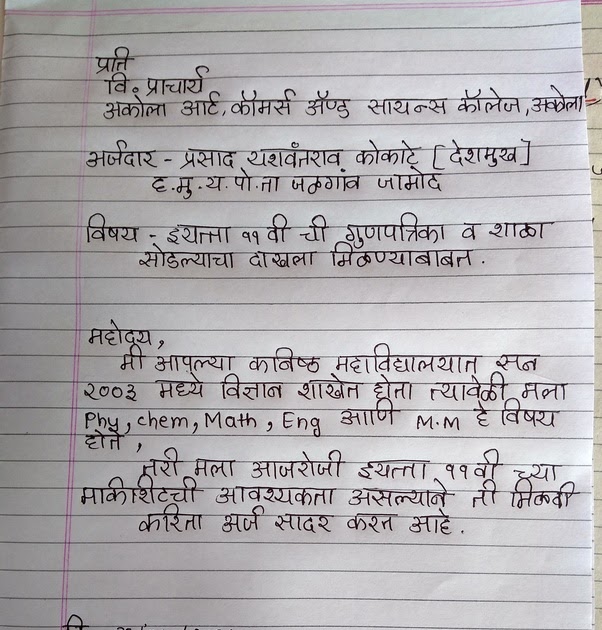 प्रति
वि. प्राचार्य
अकोला आर्ट, कॉमर्स ॲण्ड सायन्स कॉलेज, अकोला
अर्जदार - प्रसाद यशवंतराव कोकाटे [देशमुख]
ह.मु.य.पो.ता जळगांव जामोद
विषय - इयत्ता ११ वी ची गुणपत्रिका व शाळा
सोडल्याचा दाखला मिळण्याबाबत.
महोदय,
मी आपल्या कनिष्ठ महाविद्यालयात सन
२००३ मध्ये विज्ञान शाखेत होतो त्यावेळी मला
Phy, chem, Math, Eng आणि M.M हे विषय
होते,
तरी मला आजरोजी इयत्ता ११वी च्या
मार्कशिटची आवश्यकता असल्याने ती मिळावी
करिता अर्ज सादर करत आहे.